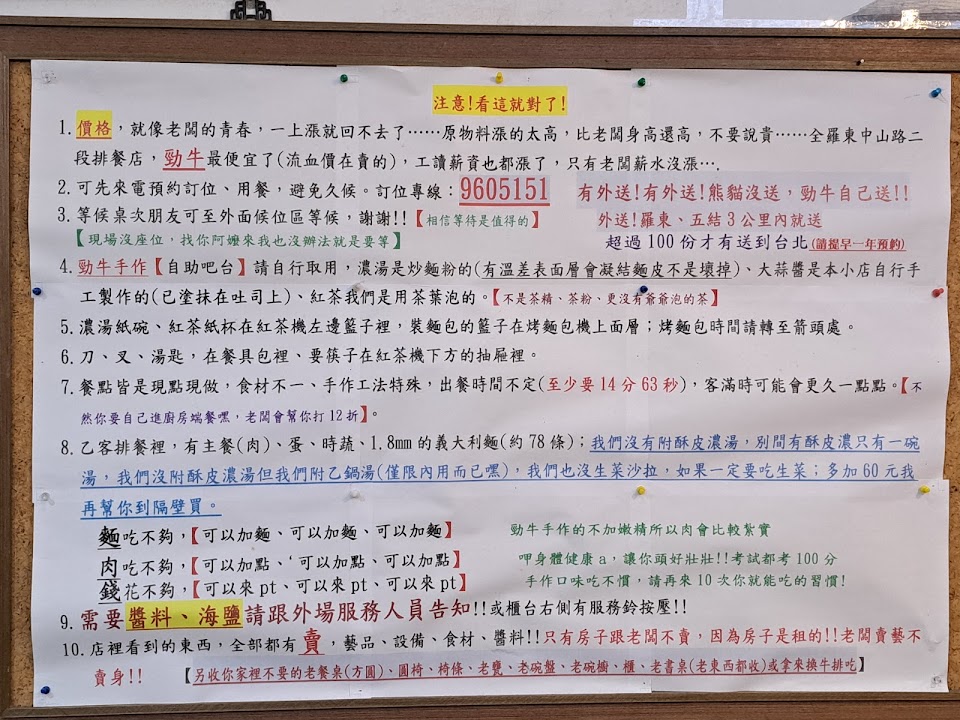 注意!看這就對了!
1. 價格，就像老闆的青春，一上漲就回不去了……原物料漲的太高，比老闆身高還高，不要說貴……全羅東中山路二
段排餐店，勁牛最便宜了(流血價在賣的)，工讀薪資也都漲了，只有老闆薪水沒漲….
2. 可先來電預約訂位、用餐，避免久候。訂位專線：9605151
有外送!有外送!熊貓沒送，勁牛自己送!!
3. 等候桌次朋友可至外面候位區等候，謝謝!!【相信等待是值得的】
外送!羅東、五結3公里內就送
【現場沒座位，找你阿嬤來我也沒辦法就是要等】
超過100份才有送到台北(請提早一年預約)
4. 勁牛手作【自助吧台】請自行取用，濃湯是炒麵粉的(有溫差表面層會凝結麵皮不是壞掉)、大蒜醬是本小店自行手
工製作的(已塗抹在吐司上)、紅茶我們是用茶葉泡的。【不是茶精、茶粉、更沒有爺爺泡的茶】
5. 濃湯紙碗、紅茶紙杯在紅茶機左邊籃子裡，裝麵包的籃子在烤麵包機上面層；烤麵包時間請轉至箭頭處。
6. 刀、叉、湯匙，在餐具包裡、要筷子在紅茶機下方的抽屜裡。
7. 餐點皆是現點現做，食材不一、手作工法特殊，出餐時間不定(至少要14分63秒)，客滿時可能會更久一點點。【不
然你要自己進廚房端餐嘿，老闆會幫你打12折】。
8. 乙客排餐裡，有主餐(肉)、蛋、時蔬、1.8mm的義大利麵(約78條)；我們沒有附酥皮濃湯，別間有酥皮濃只有一碗
湯，我們沒附酥皮濃湯但我們附乙鍋湯(僅限內用而已嘿)，我們也沒生菜沙拉，如果一定要吃生菜；多加60元我
再幫你到隔壁買。
麵吃不夠，【可以加麵、可以加麵、可以加麵】
勁牛手作的不加嫩精所以肉會比較紮實
肉吃不夠，【可以加點、‵可以加點、可以加點】
呷身體健康a，讓你頭好壯壯!!考試都考100分
錢花不夠，【可以來pt、可以來pt、可以來pt】
手作口味吃不慣，請再來10次你就能吃的習慣!
9. 需要醬料、海鹽請跟外場服務人員告知!!或櫃台右側有服務鈴按壓!!
10. 店裡看到的東西，全部都有賣，藝品、設備、食材、醬料!!只有房子跟老闆不賣，因為房子是租的!!老闆賣藝不
賣身!!
【另收你家裡不要的老餐桌(方圓)、圓椅、椅條、老甕、老碗盤、老碗櫥、櫃、老書桌(老東西都收)或拿來換牛排吃】